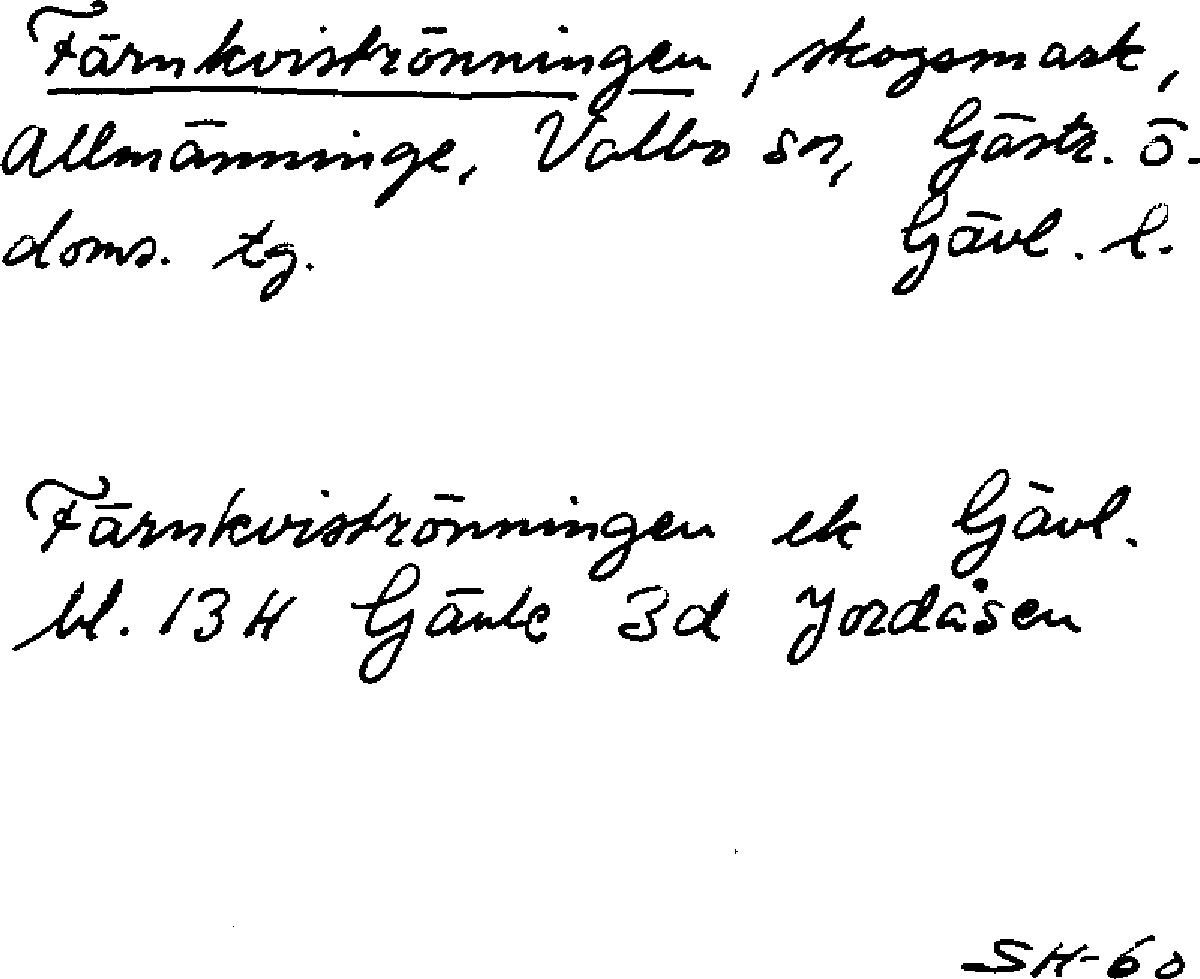 Färnkviströnningen, skogsmark,
Allmänninge, Valbo sn, Gästr. ö.
doms. tg. Gävl. l.
Färnkviströnningen ek Gävl.
bl. 13 H Gävle 3d Jordåsen
SH-60